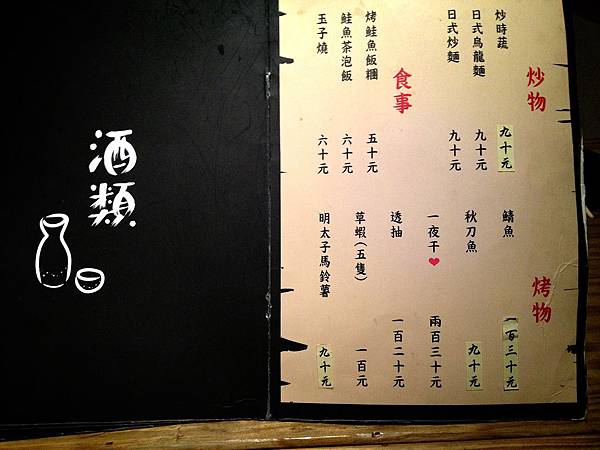 炒物
炒時蔬 九十元
日式烏龍麵 九十元
日式炒麵 九十元
食事
烤鮭魚飯糰 五十元
鮭魚茶泡飯 六十元
玉子燒 六十元
烤物
鯖魚 一百三十元
秋刀魚 九十元
一夜干❤ 兩百三十元
透抽 一百二十元
草蝦(五隻) 一百元
明太子馬鈴薯 九十元
酒類